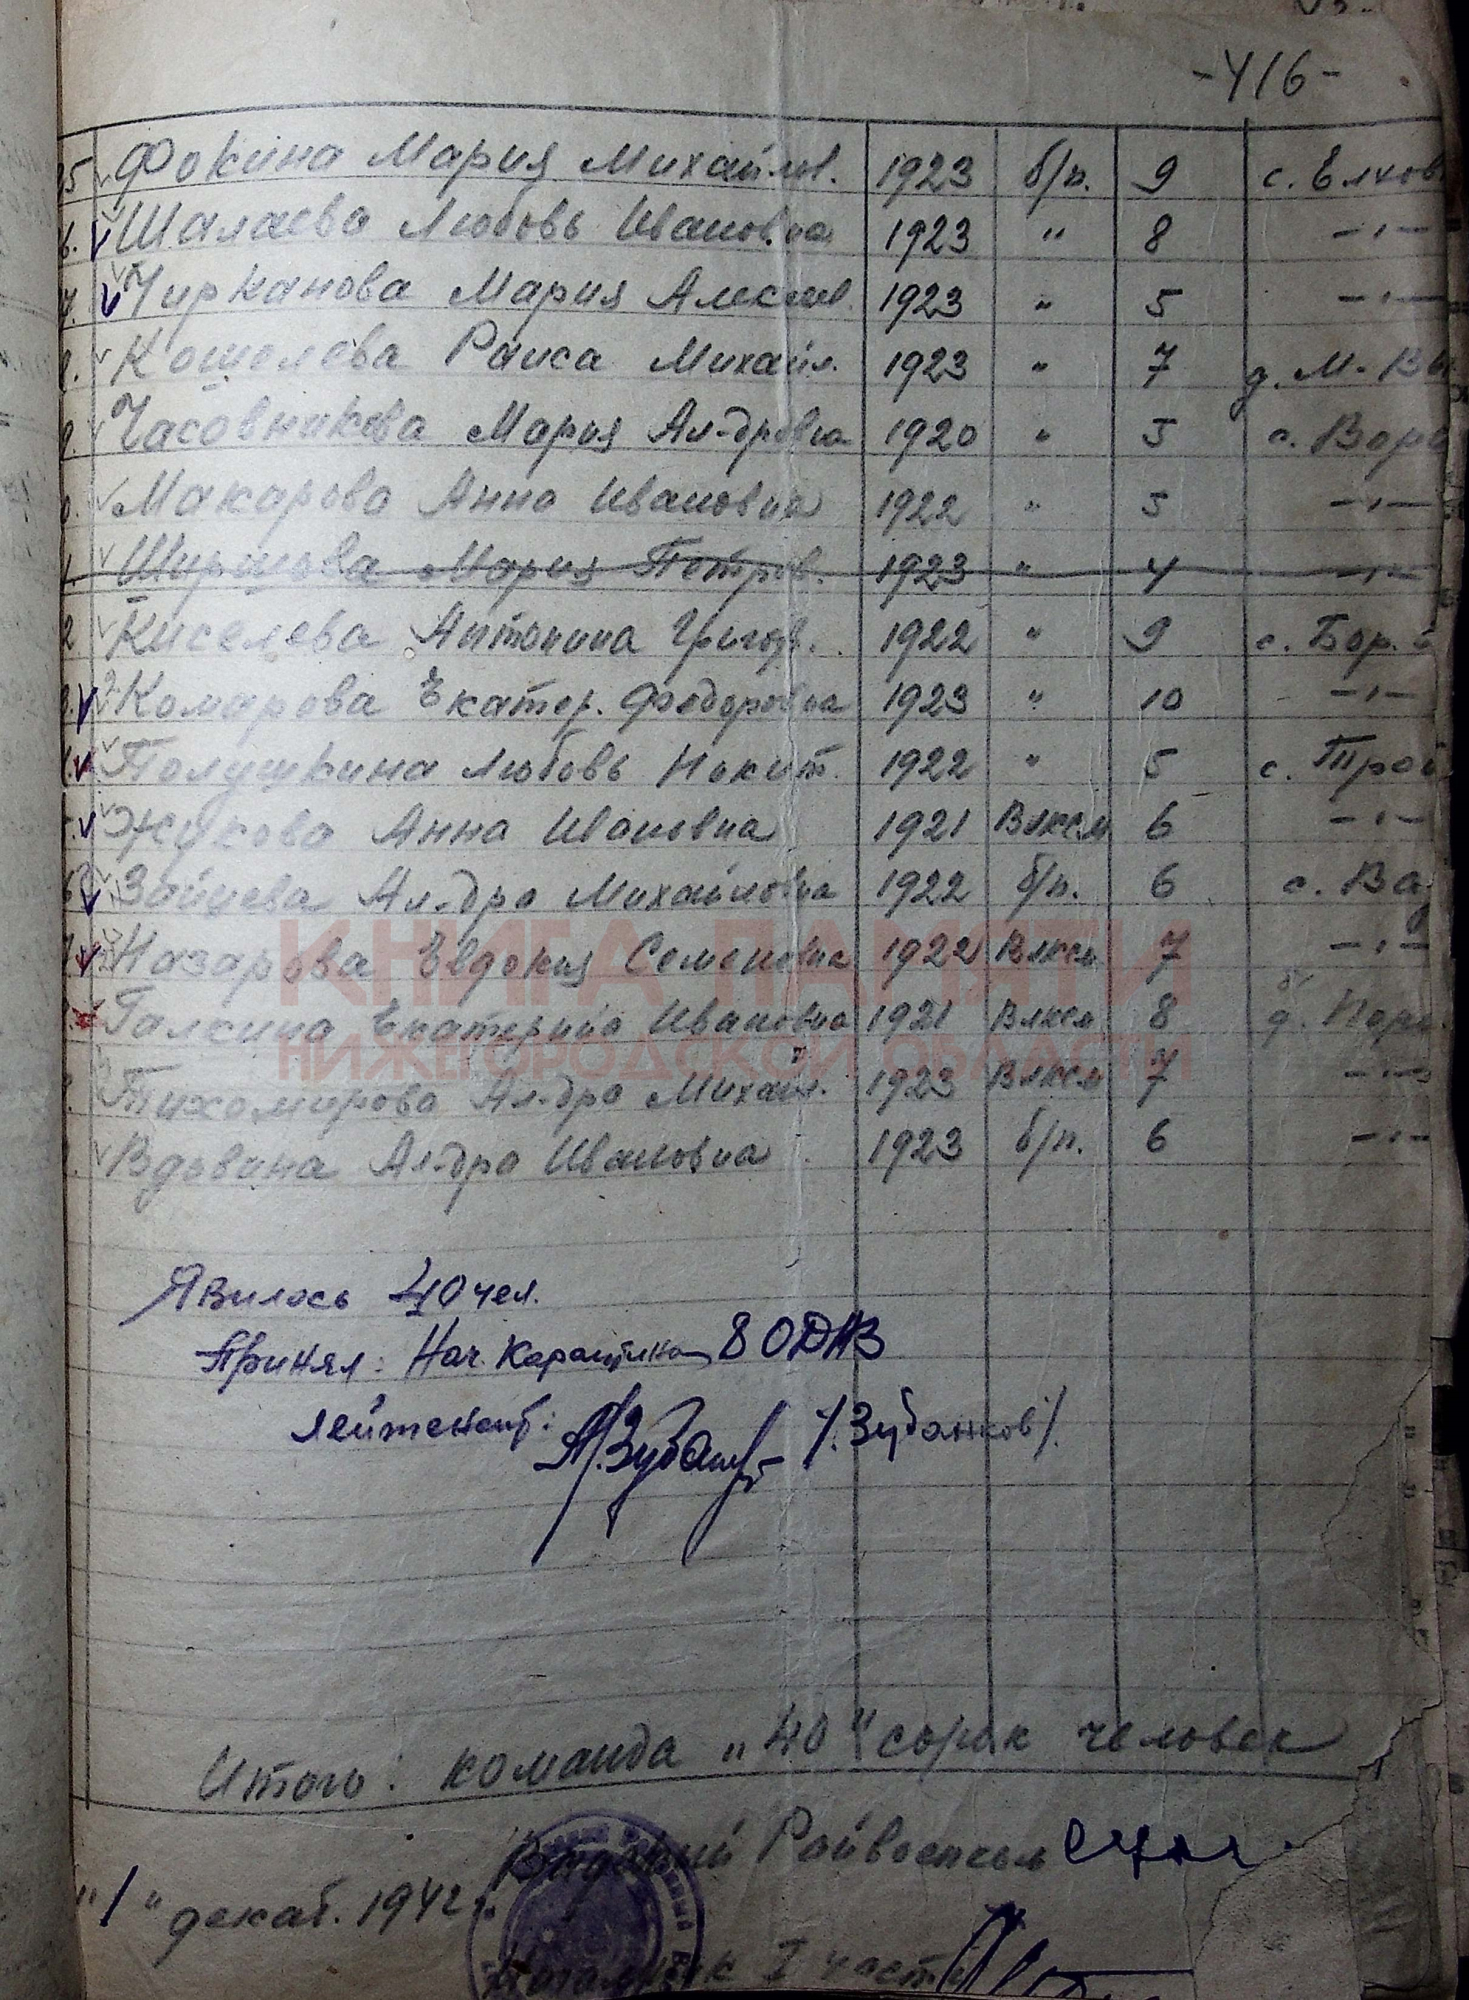 -416-
5 Фокина Мария Михайлов. 1923 б/п. 9 с. Елков
6. Шалаева Любовь Ивановна 1923 " 8 -"-
7. Чирканова Мария Алексеев. 1923 " 5 -"-
Кошелева Раиса Михайл. 1923 " 7 д. М. Вы
9. Часовникова Мария Ал-дровна 1920 " 5 с. Воро
Макарова Анна Ивановна 1922 " 5 -"-
1. Ширшова Мария Петров. 1923 " 4 -"-
2 Киселева Антонина Григор. 1922 " 9 с. Бор.
Комарова Екатер. Федоровна 1923 " 10 -"-
Полушкина Любовь Никит. 1922 " 5 с. Трой
Жукова Анна Ивановна 1921 Влксм 6 -"-
6 Зайцева Ал-дра Михайловна 1922 б/п. 6 с. Вад
Назарова Евдокия Семеновна 1922 Влксм 7 -"-
Галкина Екатерина Ивановна 1921 Влксм 8 д. Пор
Тихомирова Ал-дра Михайл. 1923 Влксм 7 -"-
Вдовина Ал-дра Ивановна 1923 б/п. 6 -"-
КНИГА ПАМЯТИ
НИЖЕГОРОДСКОЙ ОБЛАСТИ
Явилось 40 чел.
Принял: Нач. Карантина 8 ОДАЗ
лейтенант: /Зубанков/.
Итого: команда „40" сорок человек
Вадский Райвоенком
"1" декаб. 1942 г.
Начальник I части